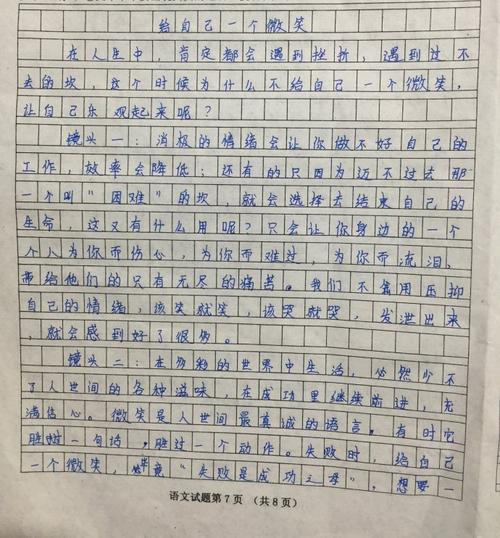 给自己一个微笑
在人生中，肯定都会遇到挫折，遇到过不
去的坎，这个时候为什么不给自己一个微笑，
让自己乐观起来呢？
镜头一：消极的情绪会让你做不好自己的
工作，效率会降低；还有的只因为迈不过去那
一个叫“困难”的坎，就会选择去结束自己的
生命，这又有什么用呢？只会让你身边的一个
个人为你而伤心，为你而难过，为你而流泪、
带给他们的只有无尽的痛苦。我们不用压抑
自己的情绪，该笑就笑，该哭就哭，发泄出来
，就会感到好了很多。
镜头二：在多彩的世界中生活，必然少不
了人世间的各种滋味，在成功里继续前进，充
满信心。微笑是人世间最真诚的语言。有时它
胜过一句话，胜过一个动作。失败时，给自己
一个微笑，毕竟“失败是成功之母”，想要一
语文试题第7页（共8页）